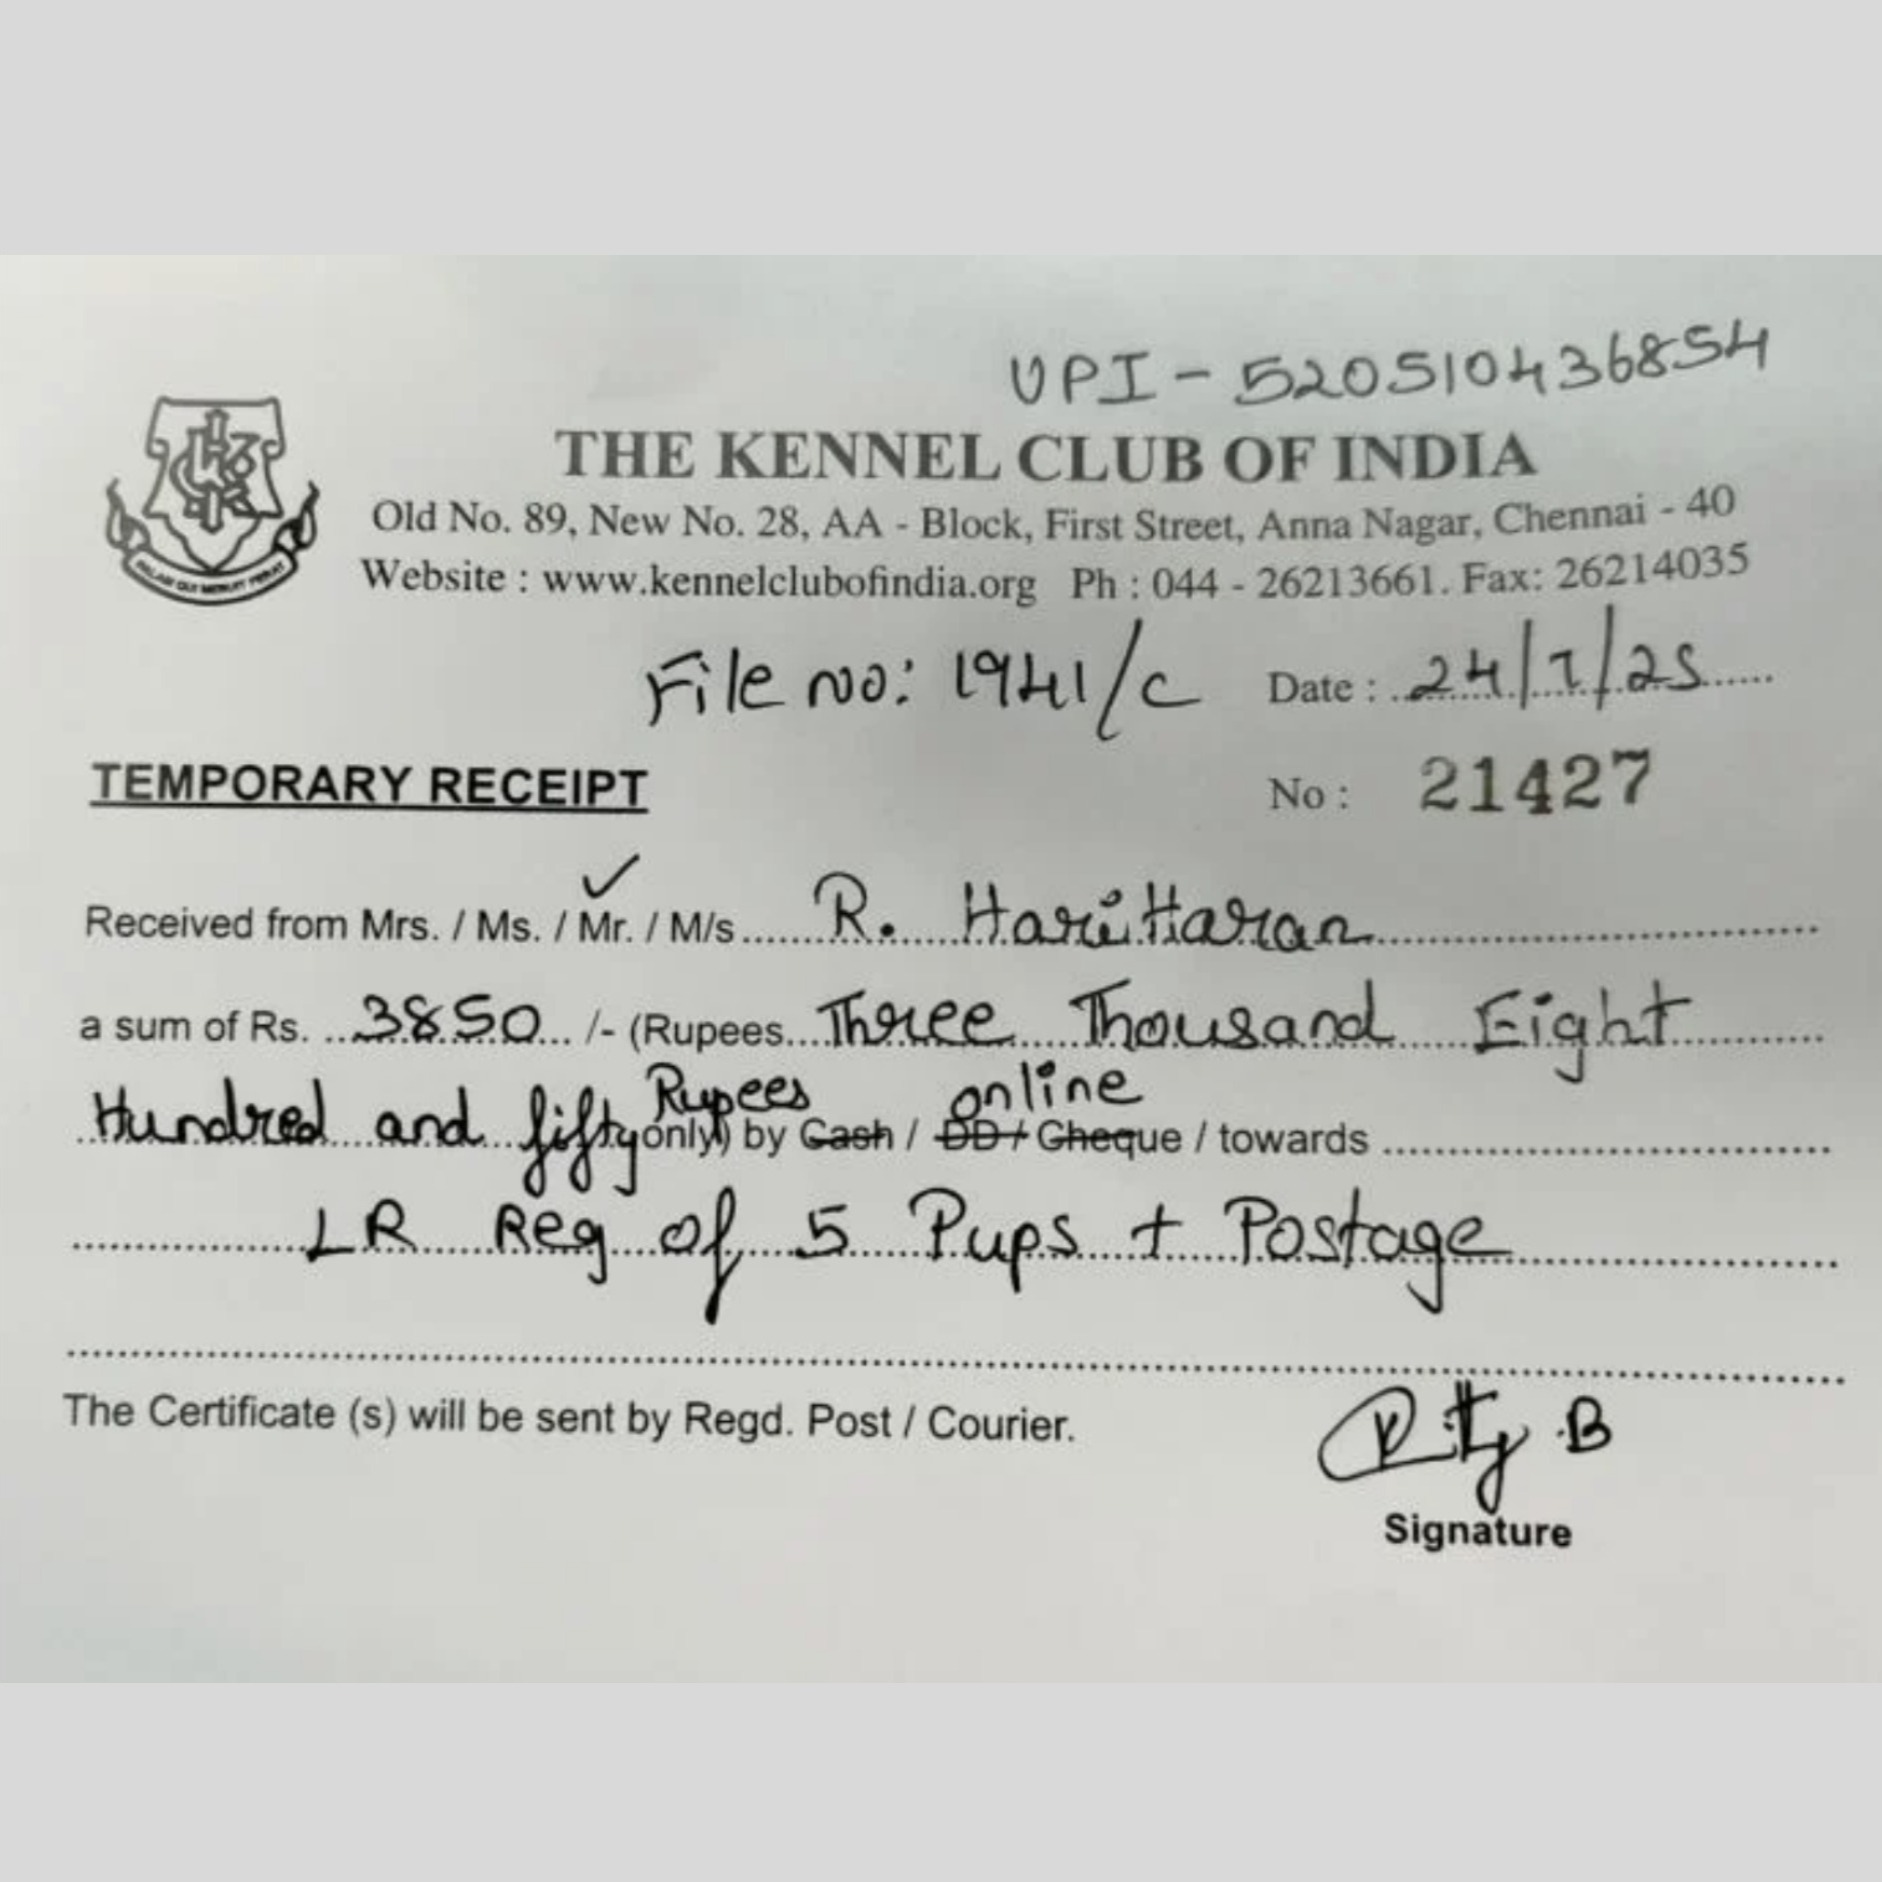 UPI - 520510436854
THE KENNEL CLUB OF INDIA
Old No. 89, New No. 28, AA - Block, First Street, Anna Nagar, Chennai - 40
Website : www.kennelclubofindia.org Ph : 044 - 26213661. Fax: 26214035
File no: 1941/c Date : 24/7/25
TEMPORARY RECEIPT No : 21427
Received from Mrs. / Ms. / Mr. / M/s R. HariHaran
a sum of Rs. 3850 /- (Rupees Three Thousand Eight
Rupees online
Hundred and fifty only) by Cash / DD / Cheque / towards
LR Reg of 5 Pups + Postage
The Certificate (s) will be sent by Regd. Post / Courier.
Signature